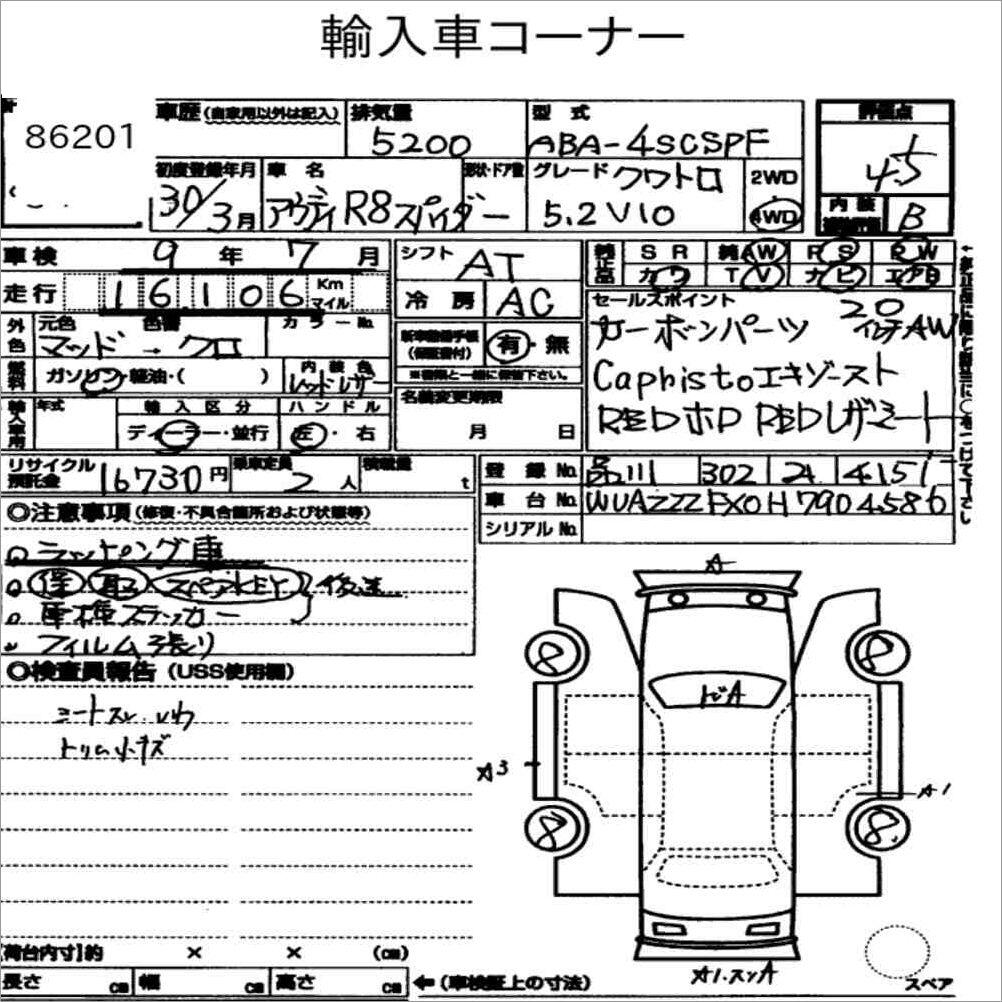 輸入車コーナー
86201
車歴(自家用以外は記入)
排気量
5200
型式
ABA-4SCSPF
評価点
4.5
初度登録年月
30/3月
車名
アウディR8スパイダー
形状・ドア数
グレード
クワトロ
5.2V10
2WD
4WD
内装
B
車検
9年7月
走行
16106
Km
マイル
シフト
AT
冷房
AC
純正品
SR
純AW
PS
PW
カワ
TV
ナビ
エアB
セールスポイント
カーボンパーツ
20インチAW
Caphistoエキゾースト
外色
元色
色番
カラーNo.
マッド→クロ
燃料
ガソリン・軽油・( )
内装色
レッドレザー
新車整備手帳
(保証書付)
有・無
※書類と一緒に保管下さい。
名義変更期限
月 日
輸入車用
年式
輸入区分
ディーラー・並行
ハンドル
左・右
リサイクル
預託金
16730円
乗車定員
2人
積載量
t
登録No.
品川 302
車台No.
WUAZZZFX0H7904586
シリアルNo.
◎注意事項(修復・不具合箇所および状態等)
ラッピング車
保 取 スペアKEY 後送
車種ステッカー
フィルム張り
◎検査員報告(USS使用欄)
シートスレ・シワ
トリム小キズ
A
8
8
トビA
A3
A1
8
8
A1.スリA
スペア
【荷台内寸】約 × × (cm)
長さ cm 幅 cm 高さ cm ←(車検証上の寸法)